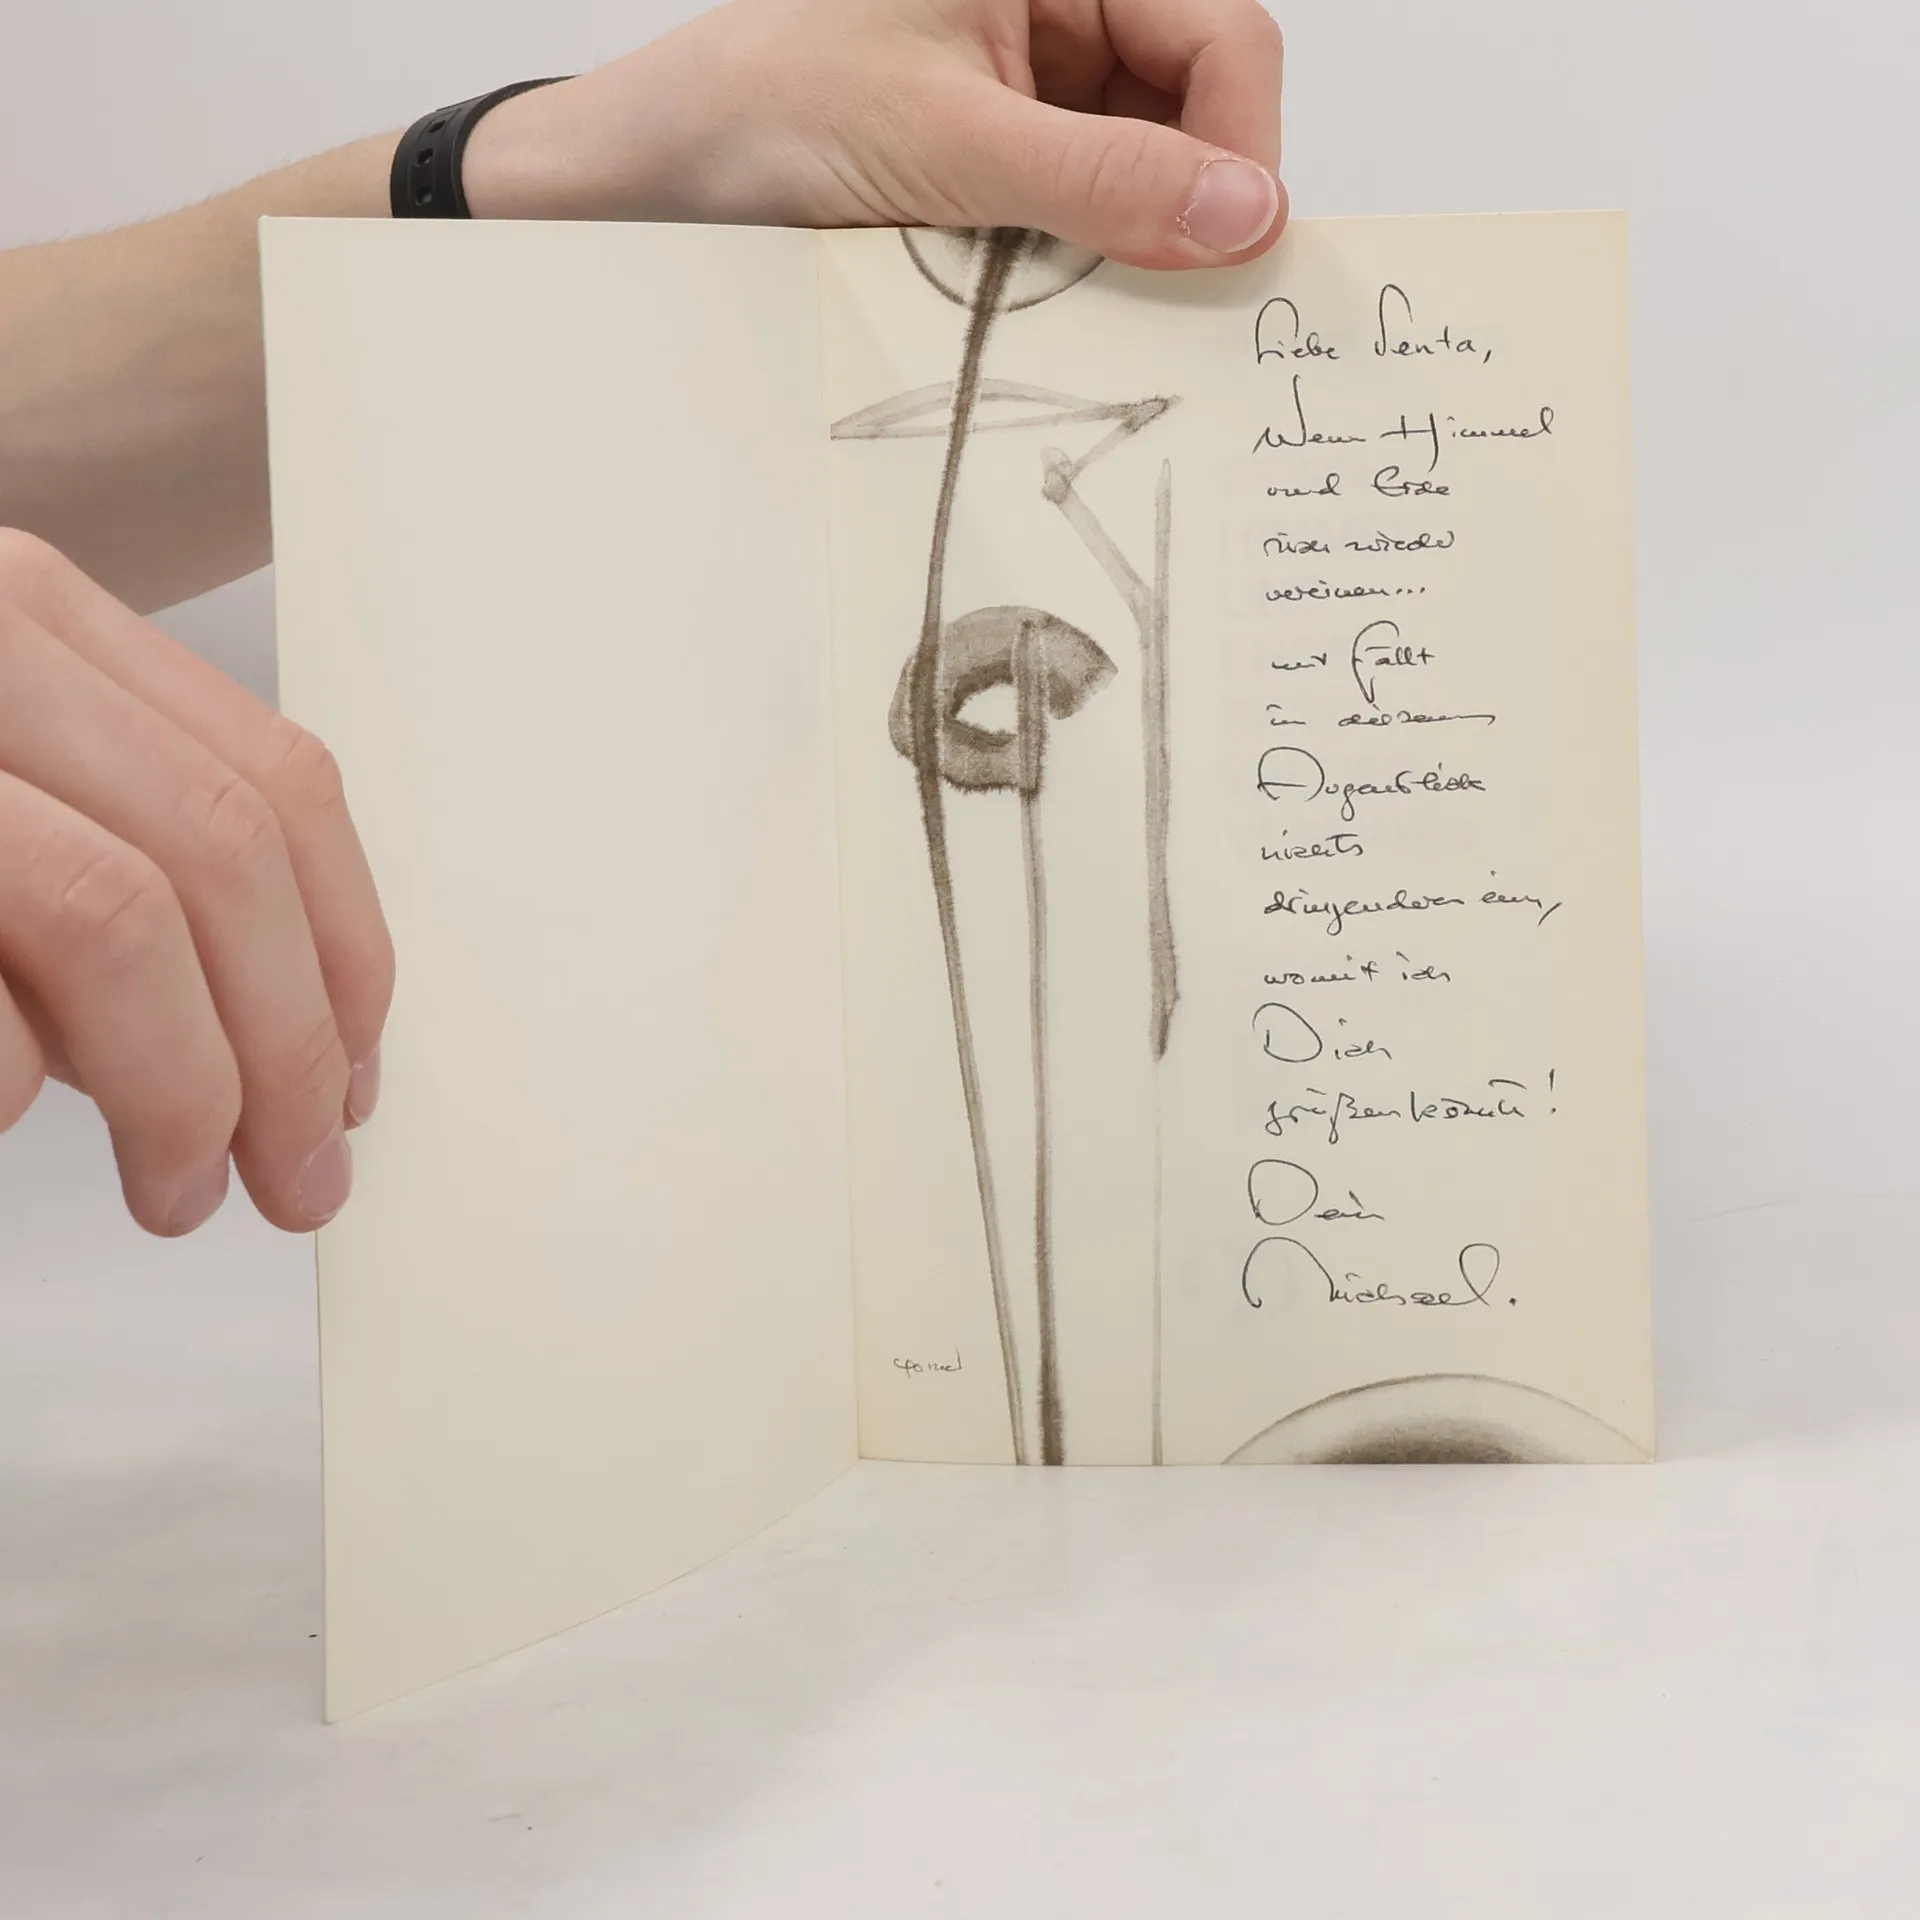 Liebe Senta,
Wenn Himmel
und Erde
sich wieder
vereinen...
mir fällt
in diesem
Augenblick
nichts
dringenderes ein,
womit ich
Dich
grüßen könnte!
Dein
Michael.